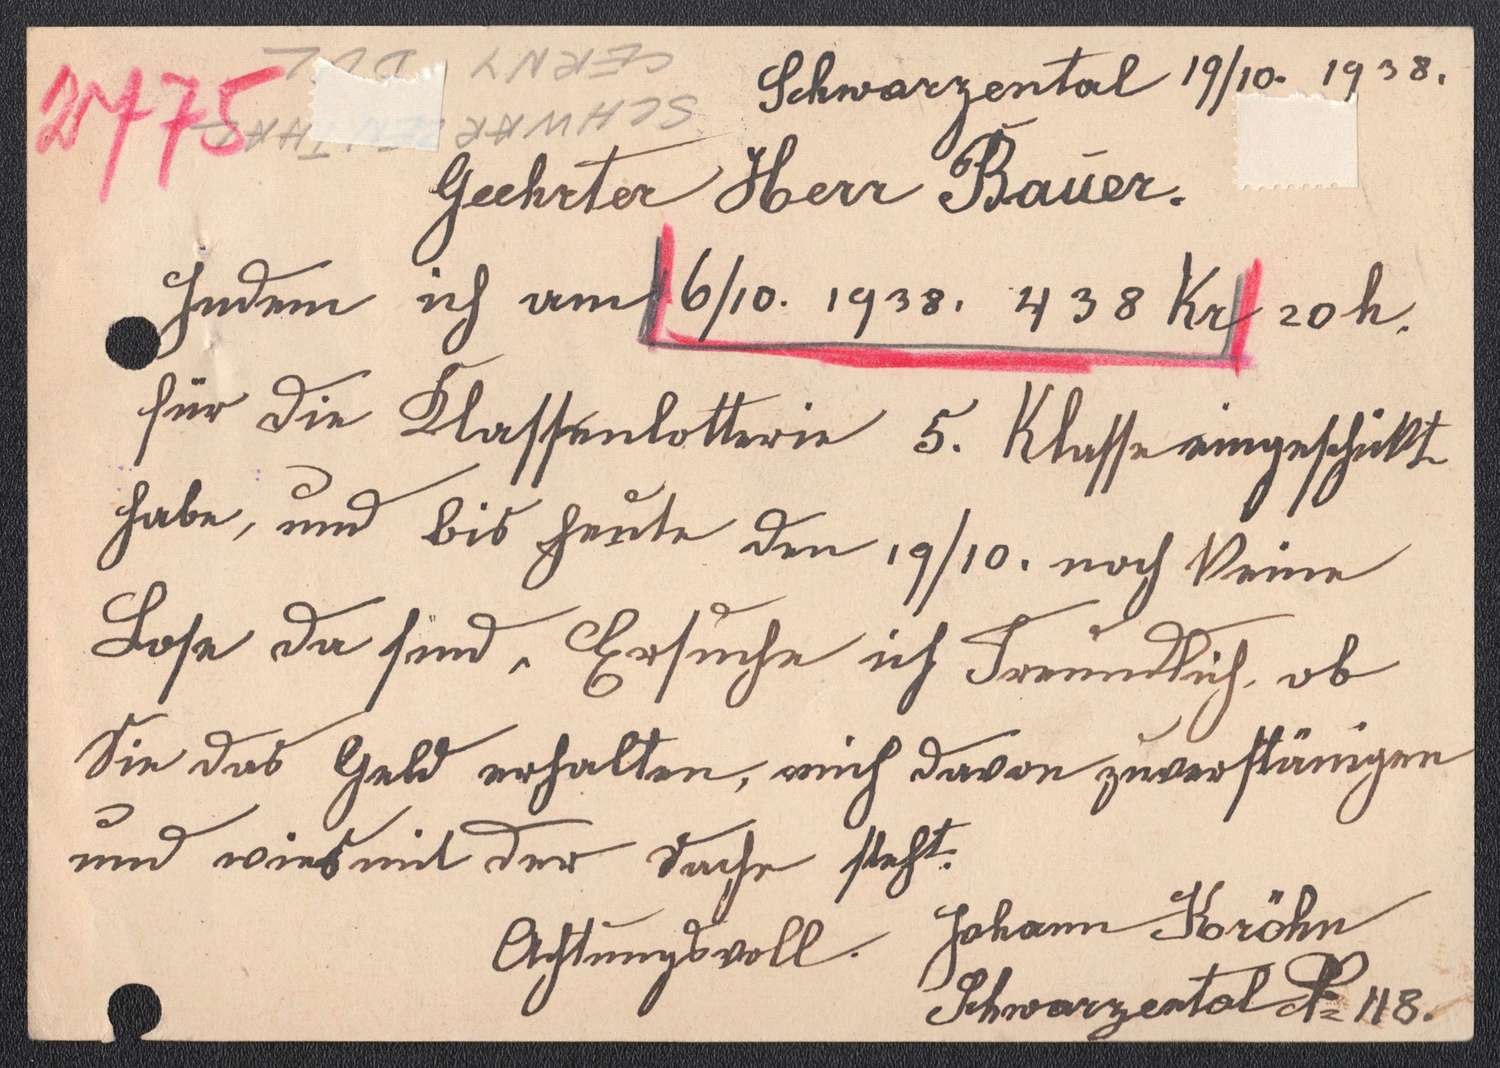 Schwarzental 19/10. 1938.
Geehrter Herr Bauer.
Indem ich am 6/10. 1938. 438 Kr 20 h.
für die Klassenlotterie 5. Klasse eingeschikt
habe, und bis heute den 19/10. noch keine
Lose da sind, Ersuche ich Freundlich, ob
Sie das Geld erhalten, mich davon zuverstänigen
und wies mit der Sache steht.
Achtungsvoll. Johann Kröhn
Schwarzental № 118.
ČERNÝ DŮL
SCHWARZENTHAL